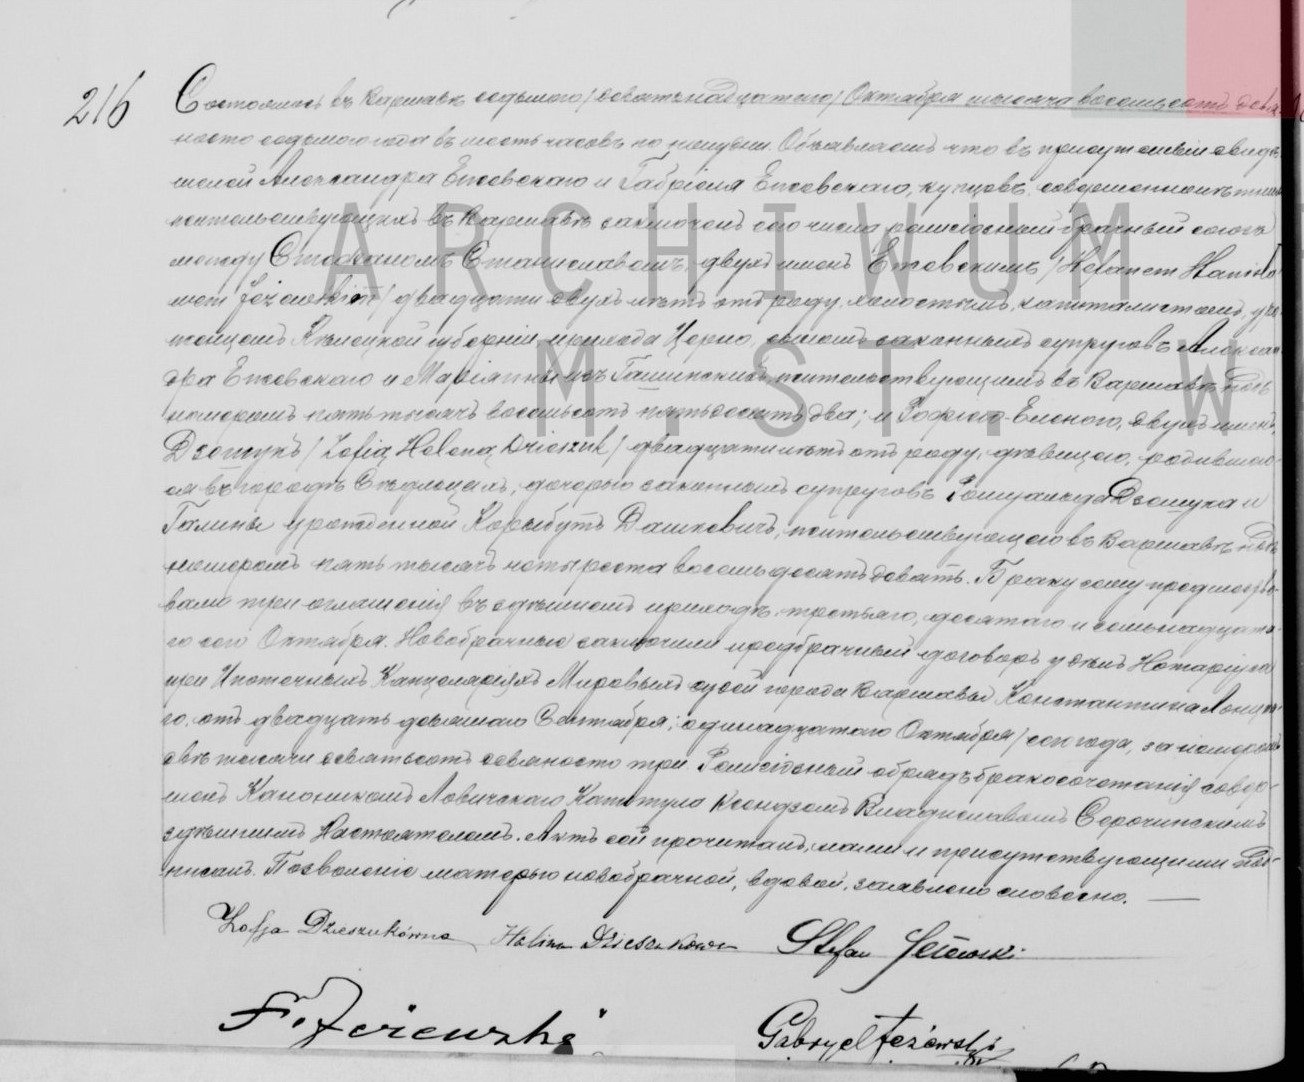 216
Состоялось въ Варшавѣ седьмого /девятьнадцатаго/ Октября тысяча восемьсотъ девя-
носто седьмого года въ шесть часовъ по полудни. Объявляемъ что въ присутствіи свидѣ-
телей Александра Ежевскаго и Габріеля Ежевскаго, купцовъ, совершеннолѣтнихъ
жительствующихъ въ Варшавѣ заключенъ сего числа религіозный брачный союзъ
между Стефаномъ Станиславомъ, двухъ именъ Ежевскимъ /Stefanem Stanisła-
wem Jeżewskim/ двадцати двухъ лѣтъ отъ роду, холостымъ, капиталистомъ, уро-
женцемъ Кѣлецкой губерніи прихода Церно, сыномъ законныхъ супруговъ Алексан-
дра Ежевскаго и Маріянны изъ жительствующимъ въ Варшавѣ подъ
номеромъ пять тысячъ восемьсотъ пятьдесятъ два; и Софіею-Еленою, двухъ именъ,
Дзешукъ /Zofią Heleną Dzieszuk/ двадцати лѣтъ отъ роду, дѣвицею, родившею-
ся въ городѣ Сѣдльцахъ, дочерью законныхъ супруговъ Ромуальда Дзешука и
Галины урожденной Корыбутъ Дашкевичъ, жительствующею въ Варшавѣ подъ
номеромъ пять тысячъ четыреста восемьдесятъ девять. Браку сему предшество-
вали три оглашенія въ здѣшнемъ приходѣ третьяго, десятаго и семьнадцата-
го сего Октября. Новобрачные заключили предбрачный договоръ у Нотаріуса
при Ипотечныхъ Канцеляріяхъ Мировыхъ судей города Варшавы Константина
го, отъ двадцать девятаго Сентября /одинадцатаго Октября/ сего года, за номеромъ
двѣ тысячи девятьсотъ девяносто три. Религіозный обрядъ бракосочетанія совер-
шенъ Каноникомъ Ловичскаго Капитула Ксендзомъ Владиславомъ Серочинскимъ
здѣшнимъ Настоятелемъ. Актъ сей прочитанъ, нами и присутствующими под-
писанъ. Позволеніе матерью новобрачной, вдовой, заявлено словесно.
Zofja Dzieszukówna Halina Dzieszukowa Stefan Jeżewski
Jeżewski Gabryel Jeżewski
ARCHIWUM
M. ST. W